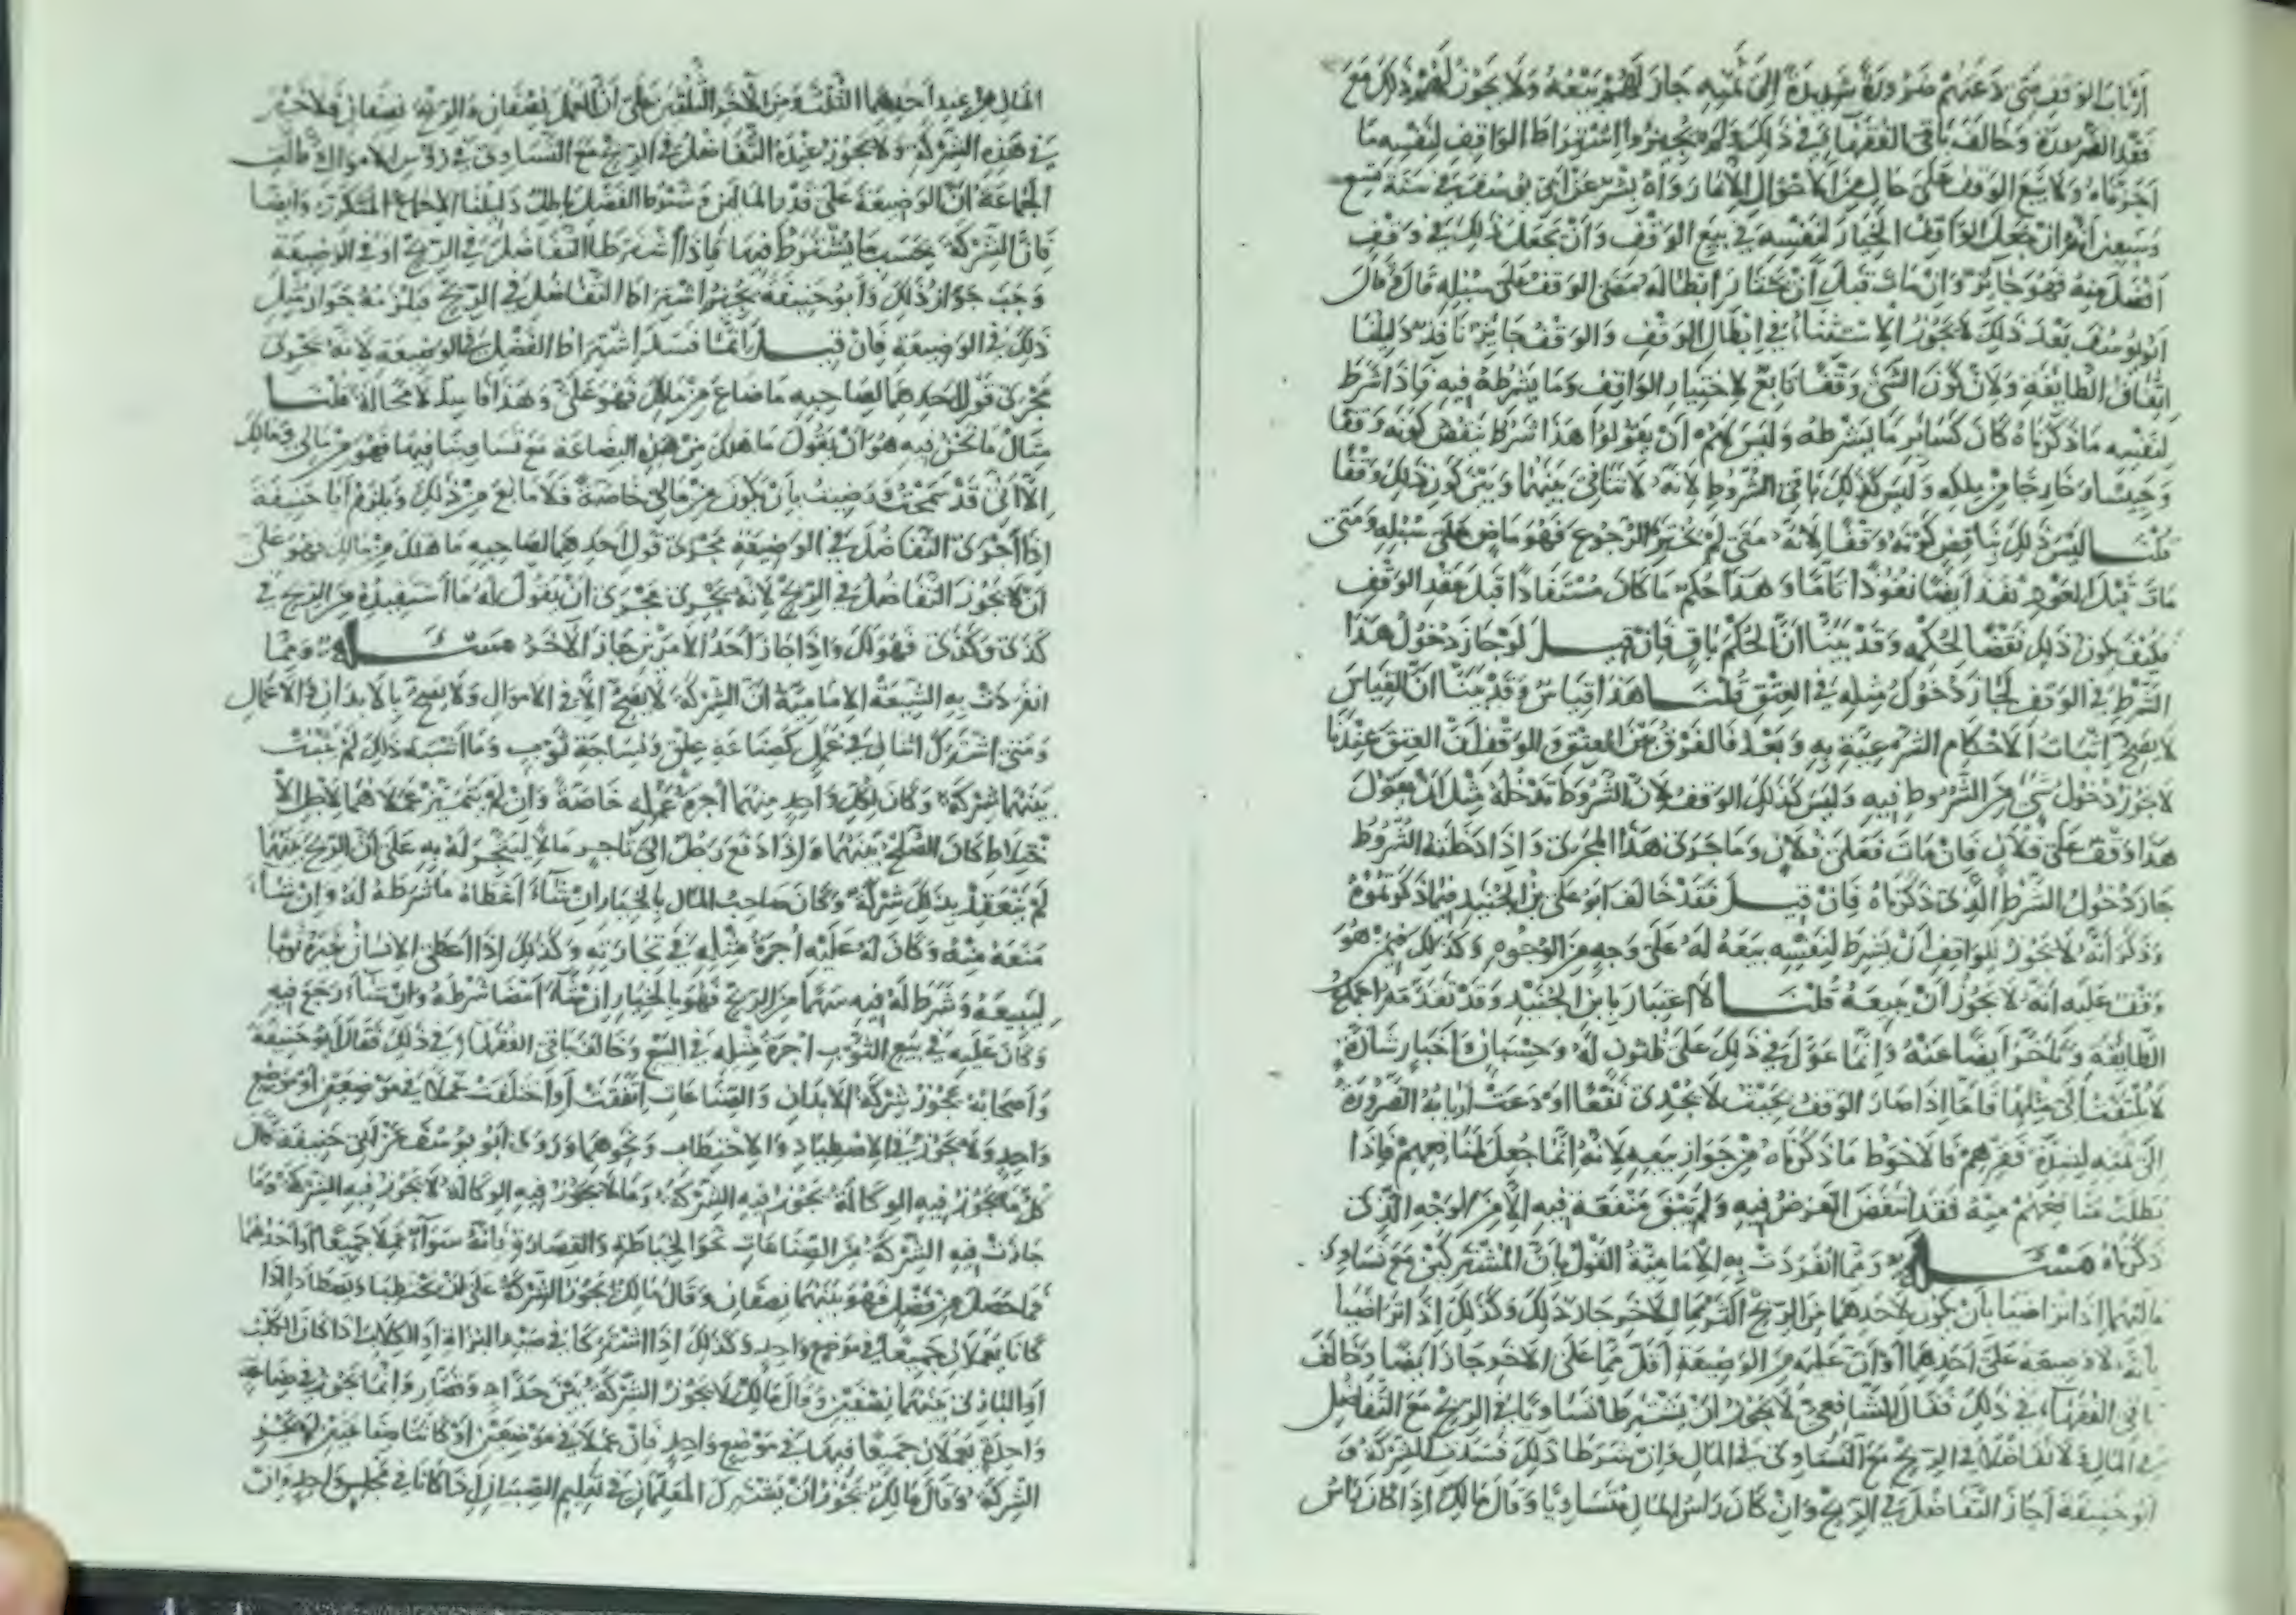 أرباب الوقف متى دعتهم ضرورة شديدة إلى ثمنه جاز لهم بيعه ولا يجوز لهم ذلك مع
فقد الضرورة وخالف باقي الفقهاء في ذلك ولم يجيزوا اشتراط الواقف لنفسه ما
أجزناه ولا بيع الوقف على حال من الأحوال إلا ما رواه بشر عن أبي يوسف في سنة تسع
وسبعين أنه إن جعل الواقف الخيار لنفسه في بيع الوقف وأن يجعل ذلك في وقف
أفضل منه فهو جائز وإن مات قبل أن يختار إبطاله مضى الوقف على سبله قال وقال
أبو يوسف بعد ذلك لا يجوز الاستثناء في إبطال الوقف والوقف جائز نافذ دليلنا
اتفاق الطائفة ولأن كون الشيء وقفا تابع لاختيار الواقف وما يشرطه فيه فإذا شرط
لنفسه ما ذكرناه كان كسائر ما يشرطه وليس لهم أن يقولوا هذا شرط ينقض كونه وقفا
وحبسا وخارجا من ملكه وليس كذلك باقي الشروط لأنه لا تنافي بينها وبين كون ذلك وقفا
قلنا ليس ذلك بناقض كونه وقفا لأنه متى لم يختر الرجوع فهو ماض على سبله ومتى
مات قبل العود نفذ أيضا نفوذا تاما وهذا حكم ما كان مستفادا قبل عقد الوقف
فكيف يكون ذلك نقضا لحكمه وقد بينا أن الحكم باق فإن قيل لو جاز دخول هذا
الشرط في الوقف لجاز دخول مثله في العتق قلنا هذا قياس وقد بينا أن القياس
لا يصح إثبات الأحكام الشرعية به وبعد فالفرق بين العتق والوقف أن العتق عندنا
لا يجوز دخول شيء من الشروط فيه وليس كذلك الوقف لأن الشروط تدخله مثل أن يقول
هذا وقف على فلان فإن مات فعلى فلان وما جرى هذا المجرى وإذا دخلته الشروط
جاز دخول الشرط الذي ذكرناه فإن قيل فقد خالف أبو علي بن الجنيد فيما ذكرتموه
وذكر أنه لا يجوز للواقف أن يشرط لنفسه بيعه له على وجه من الوجوه وكذلك فيمن هو
وقف عليه أنه لا يجوز أن يبيعه قلنا لا اعتبار بابن الجنيد وقد تقدمه إجماع
الطائفة وتأخر أيضا عنه وإنما عول في ذلك على ظنون له وحسبان وأخبار شاذة
لا يلتفت إلى مثلها فأما إذا صار الوقف بحيث لا يجدي نفعا أو دعت أربابه الضرورة
إلى ثمنه لشدة فقرهم فالأحوط ما ذكرناه من جواز بيعه لأنه إنما جعل لمنافعهم فإذا
بطلت منافعهم منه فقد انتقض الغرض فيه ولم يبق منفعة فيه إلا من الوجه الذي
ذكرناه مسئلة ومما انفردت به الإمامية القول بأن المشتركين مع تساوي
ماليهما إذا تراضيا بأن يكون لأحدهما من الربح أكثر مما للآخر جاز ذلك وكذلك إذا تراضيا
بأنه لا وضيعة على أحدهما أو أن عليه من الوضيعة أقل مما على الآخر جاز أيضا وخالف
باقي الفقهاء في ذلك فقال الشافعي لا يجوز أن يشترطا تساويا في الربح مع التفاضل
في المال ولا تفاضلا في الربح مع التساوي في المال وإن شرطا ذلك فسدت الشركة و
أبو حنيفة أجاز التفاضل في الربح وإن كان رأس المال متساويا وقال مالك إذا كان رأس
المال من عند أحدهما الثلث ومن الآخر الثلثين على أن العمل نصفان والربح نصفان فلا خير
في هذه الشركة ولا يجوز عنده التفاضل في الربح مع التساوي في رؤس الأموال وقالت
الجماعة أن الوضيعة على قدر المالين وشرط الفضل باطل دليلنا الإجماع المتكرر وأيضا
فإن الشركة بحسب ما يشترط فيها فإذا اشترطا التفاضل في الربح أو في الوضيعة
وجب جواز ذلك وأبو حنيفة يجيز اشتراط التفاضل في الربح فلزمه جواز مثل
ذلك في الوضيعة فإن قيل إنما فسد اشتراط الفضل في الوضيعة لأنه يجري
مجرى قول أحدهما لصاحبه ما ضاع من مالك فهو علي وهذا فاسد لا محالة قلنا
مثال ما نحن فيه هو أن يقول ما هلك من هذه البضاعة مع تساوينا فيها فهو من مالي ومالك
إلا أنني قد سمحت ورضيت بأن يكون من مالي خاصة فلا مانع من ذلك ويلزم أبا حنيفة
إذا أجرى التفاضل في الوضيعة مجرى قول أحدهما لصاحبه ما هلك من مالك فهو علي
أن لا يجوز التفاضل في الربح لأنه يجري مجرى أن يقول له ما أستفيده من الربح في
كذى وكذى فهو لك وإذا جاز أحد الأمرين جاز الآخر مسئلة ومما
انفردت به الشيعة الإمامية أن الشركة لا يصح إلا في الأموال ولا يصح بالأبدان في الأعمال
ومتى اشترك اثنان في عمل كصناعة علق ونساجة ثوب وما أشبه ذلك لم يثبت
بينهما شركة وكان لكل واحد منهما أجرة عمله خاصة وإن لم يتميز عملاهما لأجل الا
ختلاط كان الصلح بينهما وإذا دفع رجل إلى تاجر مالا ليتجر له به على أن الربح بينهما
لم ينعقد بذلك شركة وكان صاحب المال بالخيار إن شاء أعطاه ما شرطه له وإن شاء
منعه منه وكان له عليه أجرة مثله في تجارته وكذلك إذا أعطى الإنسان غيره ثوبا
ليبيعه وشرط له فيه سهما من الربح فهو بالخيار إن شاء أمضا شرطه وإن شاء رجع فيه
وكان عليه في بيع الثوب أجرة مثله في البيع وخالف باقي الفقهاء في ذلك فقال أبو حنيفة
وأصحابه يجوز شركة الأبدان والصناعات اتفقت أو اختلفت عملا في موضعين أو موضع
واحد ولا يجوز في الاصطياد والاحتطاب ونحوهما وروى أبو يوسف عن أبي حنيفة قال
كل ما يجوز فيه الوكالة يجوز فيه الشركة وما لا يجوز فيه الوكالة لا يجوز فيه الشركة وما
جازت فيه الشركة من الصناعات نحو الخياطة والقصارة فإنه سواء عملا جميعا أو أحدهما
فما حصل من فضل فهو بينهما نصفان وقال مالك يجوز الشركة على أن يحتطبا ويصطادا إذا
كانا يعملان جميعا في موضع واحد وكذلك إذا اشتركا في صيد البزاة أو الكلاب إذا كان الكلب
أو البازي بينهما نصفين وقال مالك لا يجوز الشركة بين حداد وقصار وإنما يجوز في صناعة
واحدة يعملان جميعا فيها في موضع واحد فإن عملا في موضعين أو كانتا صناعتين لم يجز
الشركة وقال مالك يجوز أن يشترك المعلمان في تعليم الصبيان إذا كانا في مجلس واحد وإن